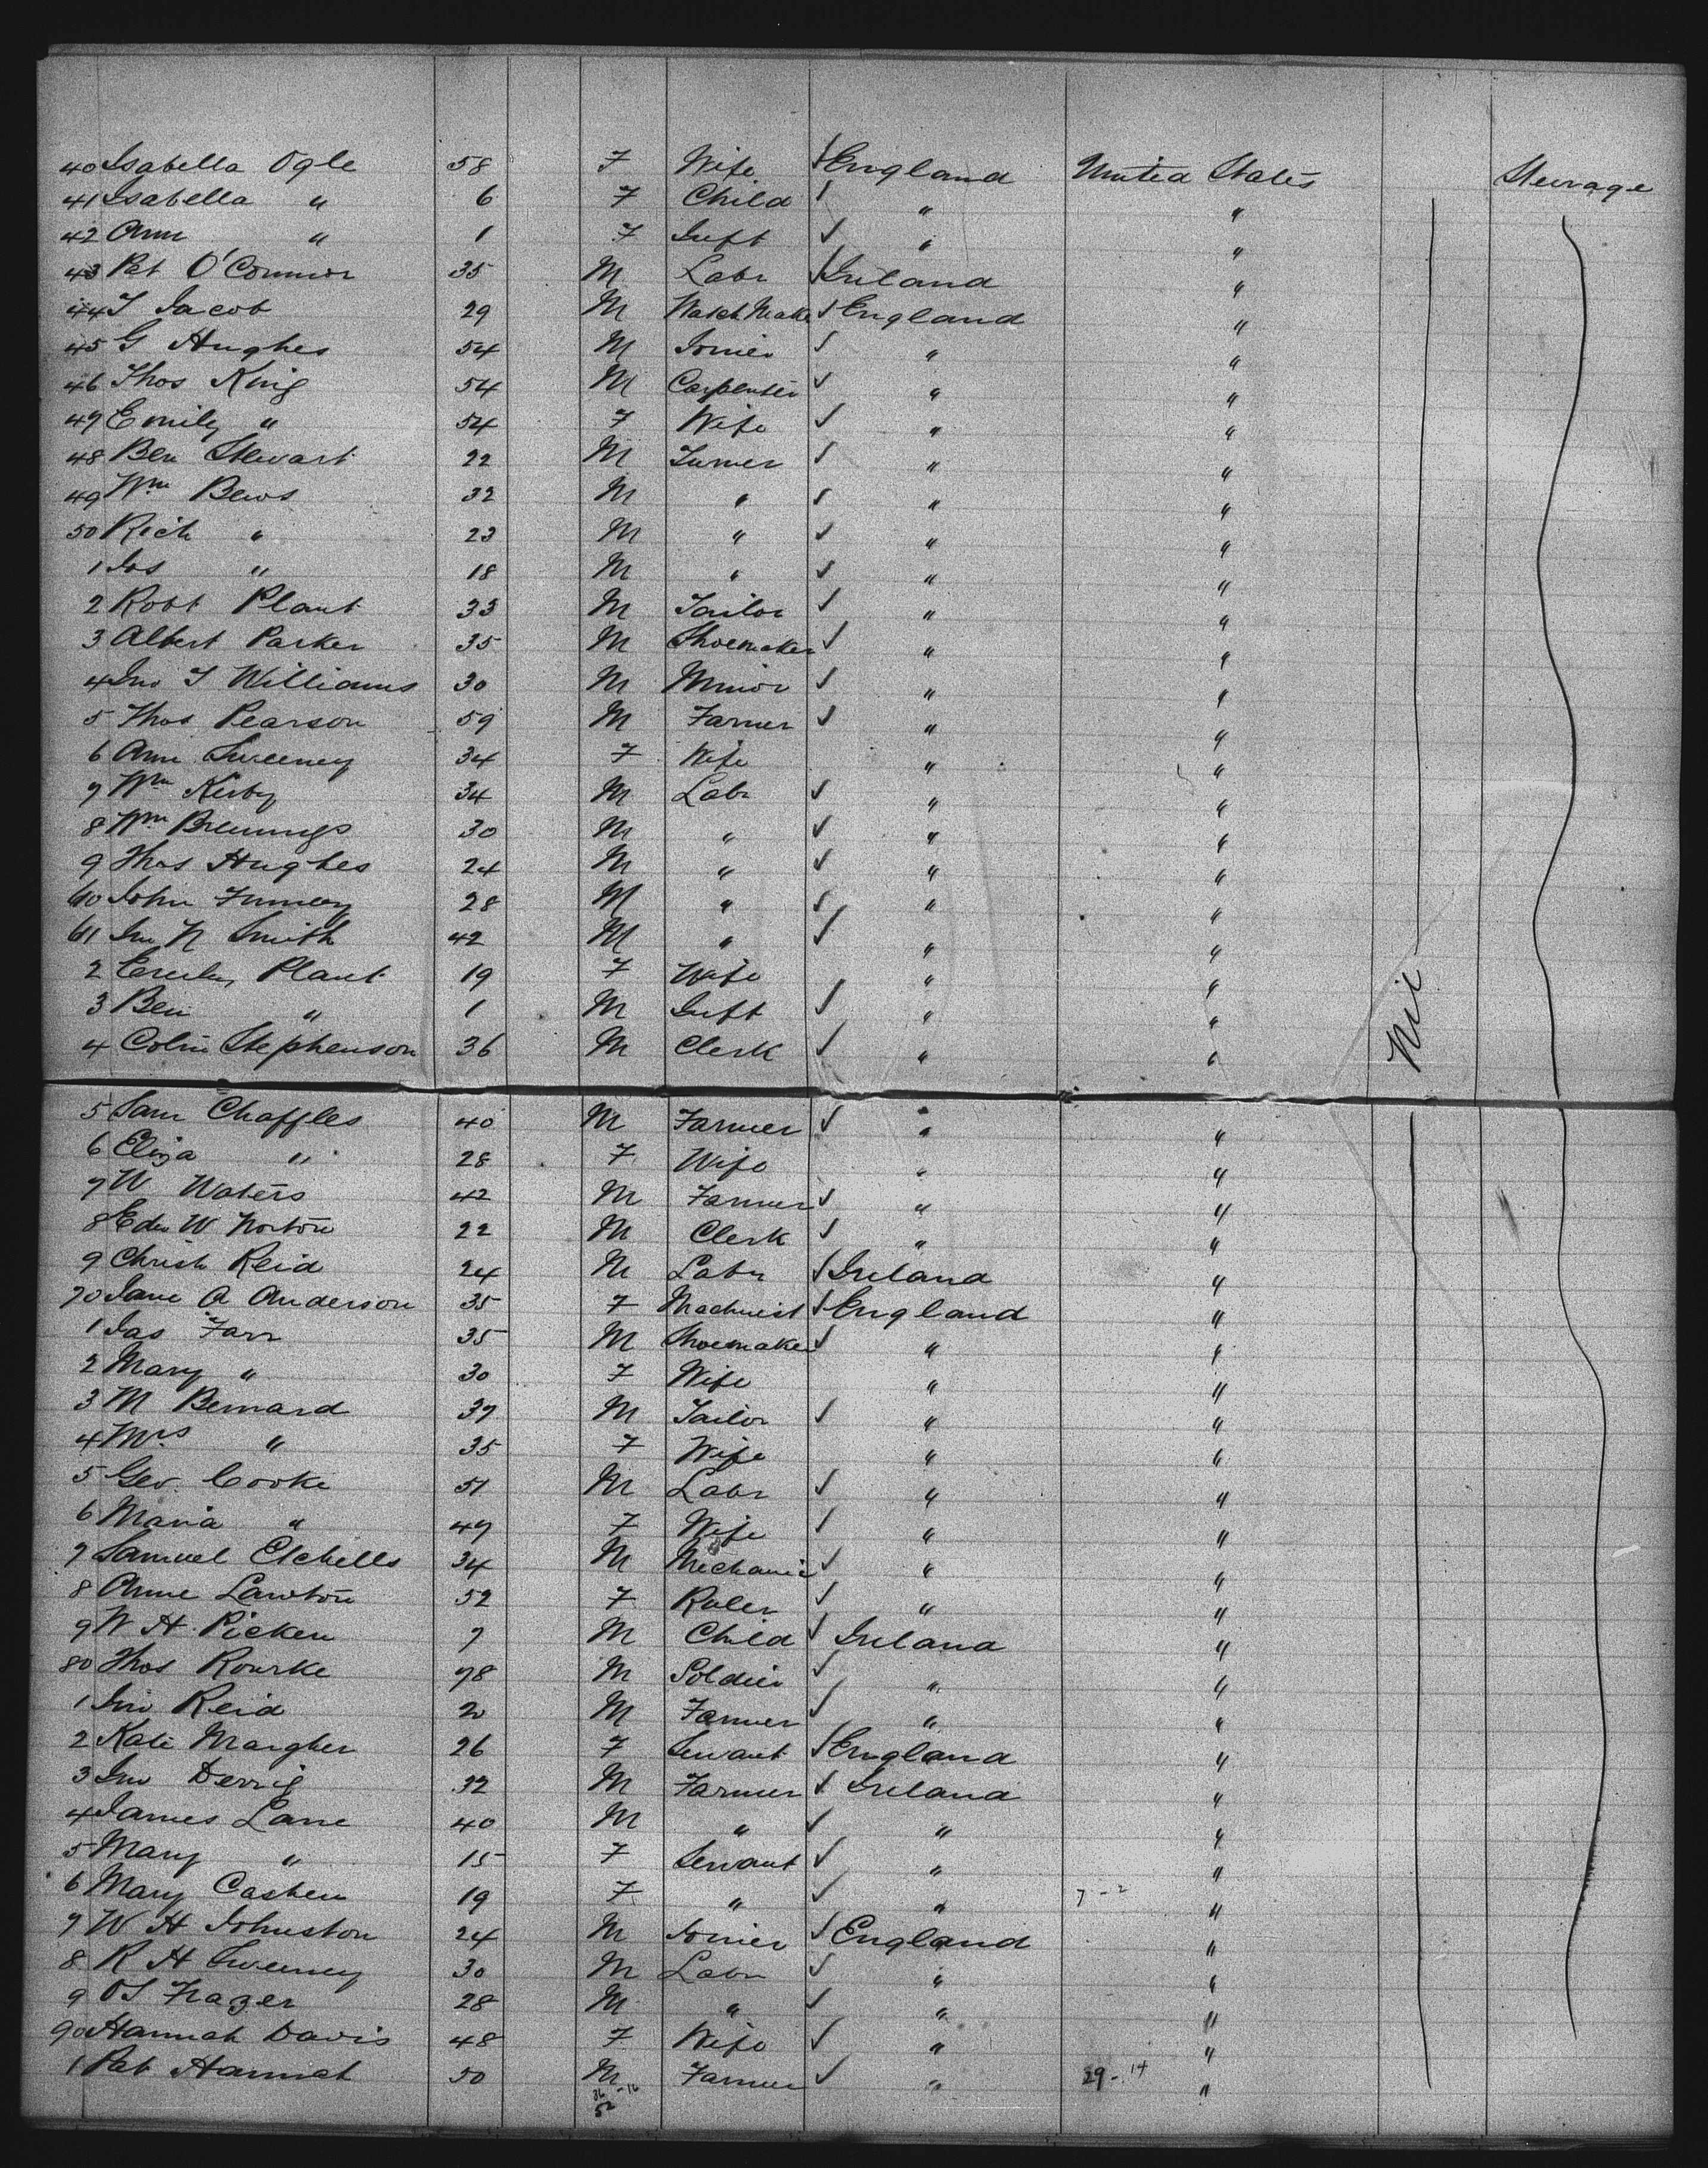 40 Isabella Ogle 58 F Wife ✓ England United States Steerage
41 Isabella " 6 F Child ✓ " "
42 Ann " 1 F Inft ✓ " "
43 Pat O'Connor 35 M Labr ✓ Ireland "
44 J Jacob 29 M Watch Make ✓ England "
45 G Hughes 54 M Joiner ✓ " "
46 Thos King 54 M Carpenter ✓ " "
47 Emily " 54 F Wife ✓ " "
48 Ben Stewart 22 M Turner ✓ " "
49 Wm Bews 32 M " ✓ " "
50 Rich " 23 M " ✓ " "
1 Jos " 18 M " ✓ " "
2 Robt Plant 33 M Tailor ✓ " "
3 Albert Parker 35 M Shoemaker ✓ " "
4 Jno J Williams 30 M Minor ✓ " "
5 Thos Pearson 59 M Farmer ✓ " "
6 Ann Sweeney 34 F Wife " "
7 Wm Kirby 34 M Labr ✓ " "
8 Wm 30 M " ✓ " "
9 Thos Hughes 24 M " ✓ " "
60 John 28 M " ✓ " "
61 Jno N Smith 42 M " ✓ " "
2 Plant 19 F Wife " "
3 Ben " 1 M Inft ✓ " "
4 Colin Stephenson 36 M Clerk ✓ " " Nil
5 Sam Chaffles 40 M Farmer ✓ " "
6 Eliza " 28 F Wife " "
7 W Waters 42 M Farmer ✓ " "
8 Edw W Norton 22 M Clerk ✓ " "
9 Christ Reid 24 M Labr ✓ Ireland "
70 Jane A Anderson 35 F Machinist ✓ England "
1 Jas Farr 35 M Shoemaker ✓ " "
2 Mary " 30 F Wife " "
3 M Bernard 37 M Tailor ✓ " "
4 Mrs " 35 F Wife " "
5 Geo. Cooke 51 M Labr ✓ " "
6 Maria " 47 F Wife ✓ " "
7 Samuel Etchells 34 M Mechanic ✓ " "
8 Anne Lawton 52 F ✓ " "
9 W H Picken 7 M Child ✓ Ireland "
80 Thos Rourke 78 M Soldier ✓ " "
1 Jno Reid 20 M Farmer ✓ " "
2 Kate 26 F Servant ✓ England "
3 Jno Derrig 32 M Farmer ✓ Ireland "
4 James Lane 40 M " ✓ " "
5 Mary " 15 F Servant ✓ " "
6 Mary Cashen 19 F " ✓ " 7-2 "
7 W H Johnston 24 M Joiner ✓ England "
8 R H Sweeney 30 M Labr ✓ " "
9 Frazer 28 M " ✓ " "
90 Hannah Davis 48 F Wife ✓ " "
1 Pat Hannah 50 M Farmer ✓ " 29-14 "
36-16
52